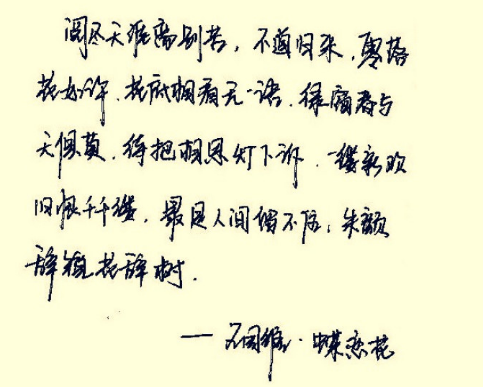 阅尽天涯离别苦，不道归来，零落
花如许．花底相看无一语，绿窗春与
天俱莫．待把相思灯下诉，一缕新欢
旧恨千千缕．最是人间留不住，朱颜
辞镜花辞树．
——王国维·蝶恋花